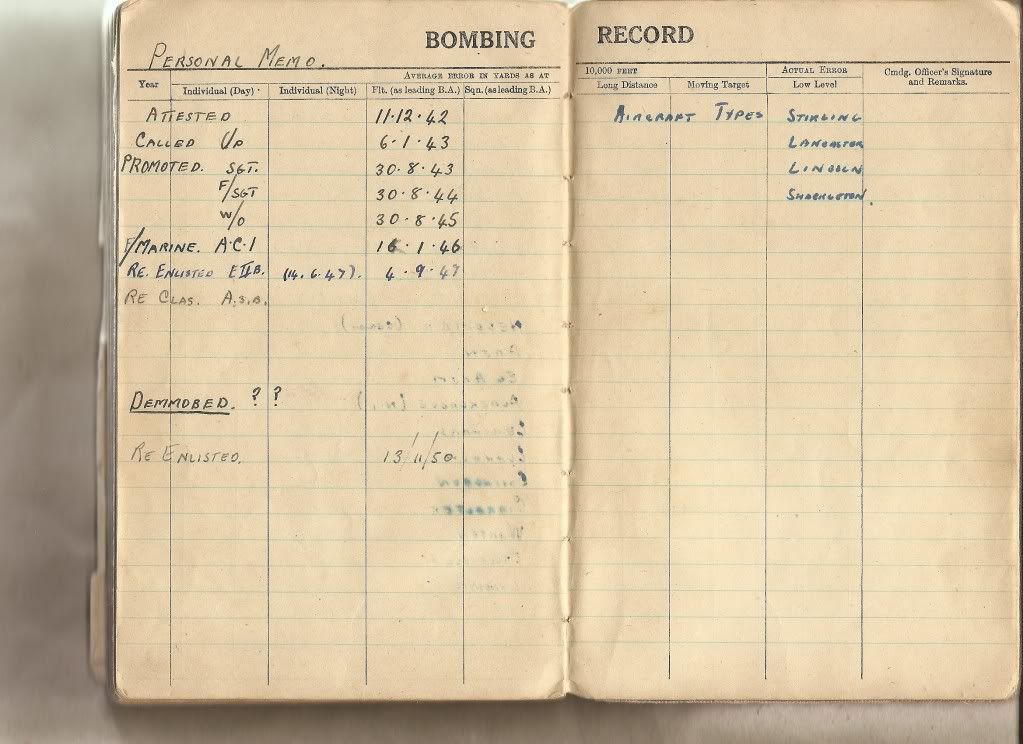 BOMBING RECORD
PERSONAL MEMO.
AVERAGE ERROR IN YARDS AS AT
Year
Individual (Day)
Individual (Night)
Flt. (as leading B.A.)
Sqn. (as leading B.A.)
10,000 FEET
Long Distance
Moving Target
ACTUAL ERROR
Low Level
Cmdg. Officer's Signature
and Remarks.
ATTESTED 11·12·42
CALLED UP 6·1·43
PROMOTED. SGT. 30·8·43
F/SGT 30·8·44
W/O 30·8·45
F/MARINE. A·C·1 16·1·46
RE. ENLISTED (14.6.47). 4·9·47
RE CLAS.
DEMMOBED. ? ?
RE ENLISTED. 13/11/50
AIRCRAFT TYPES STIRLING
LANCASTER
LINCOLN
SHACKLETON.